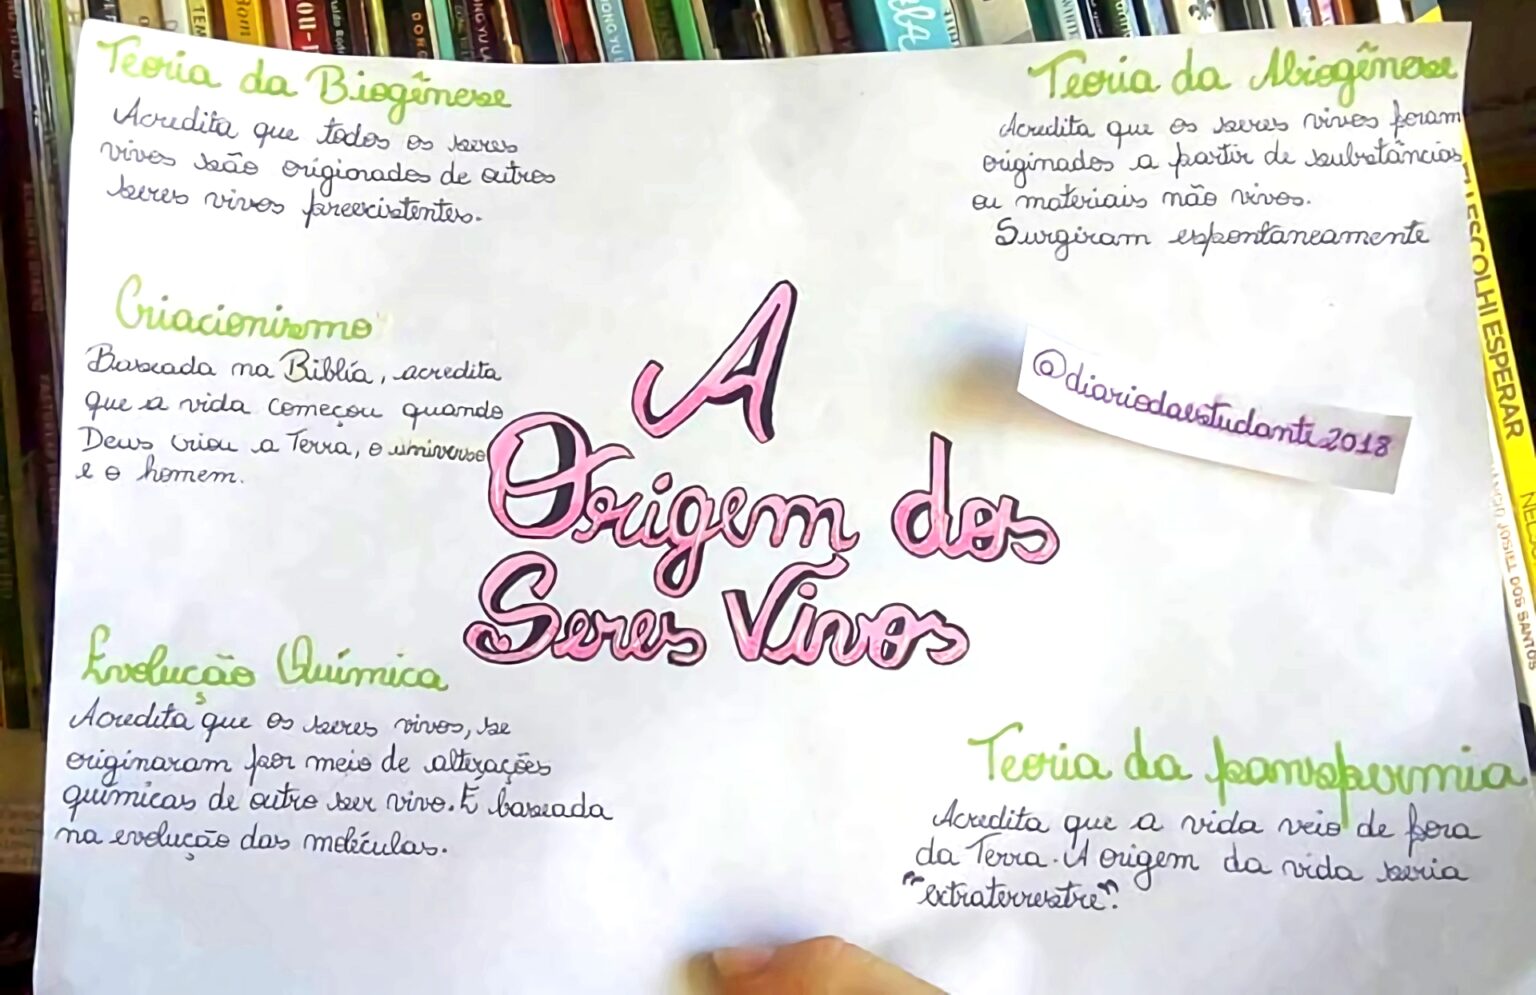 Teoria da Biogênese
Acredita que todos os seres
vivos são origionados de outros
seres vivos preexistentes.
Teoria da Abiogênese
Acredita que os seres vivos foram
originados a partir de substâncias
ou materiais não vivos.
Surgiram espontaneamente
Criacionismo
Baseada na Biblía, acredita
que a vida começou quando
Deus criou a Terra, o universo
e o homem.
A
Origem dos
Seres Vivos
@diariodaestudante2018
Evolução Química
Acredita que os seres vivos, se
originaram por meio de alterações
químicas de outro ser vivo. É baseada
na evolução das moléculas.
Teoria da panspermia
Acredita que a vida veio de fora
da Terra. A origem da vida seria
"extraterrestre".
ESCOLHI ESPERAR
JOSIEL DOS SANTOS